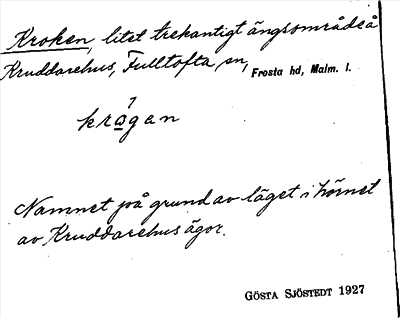 Kroken, litet trekantigt ängsområde å
Kruddarehus, Fulltofta sn, Frosta hd, Malm. l.
krogan
Namnet på grund av läget i hörnet
av Kruddarehus ägor.
GÖSTA SJÖSTEDT 1927